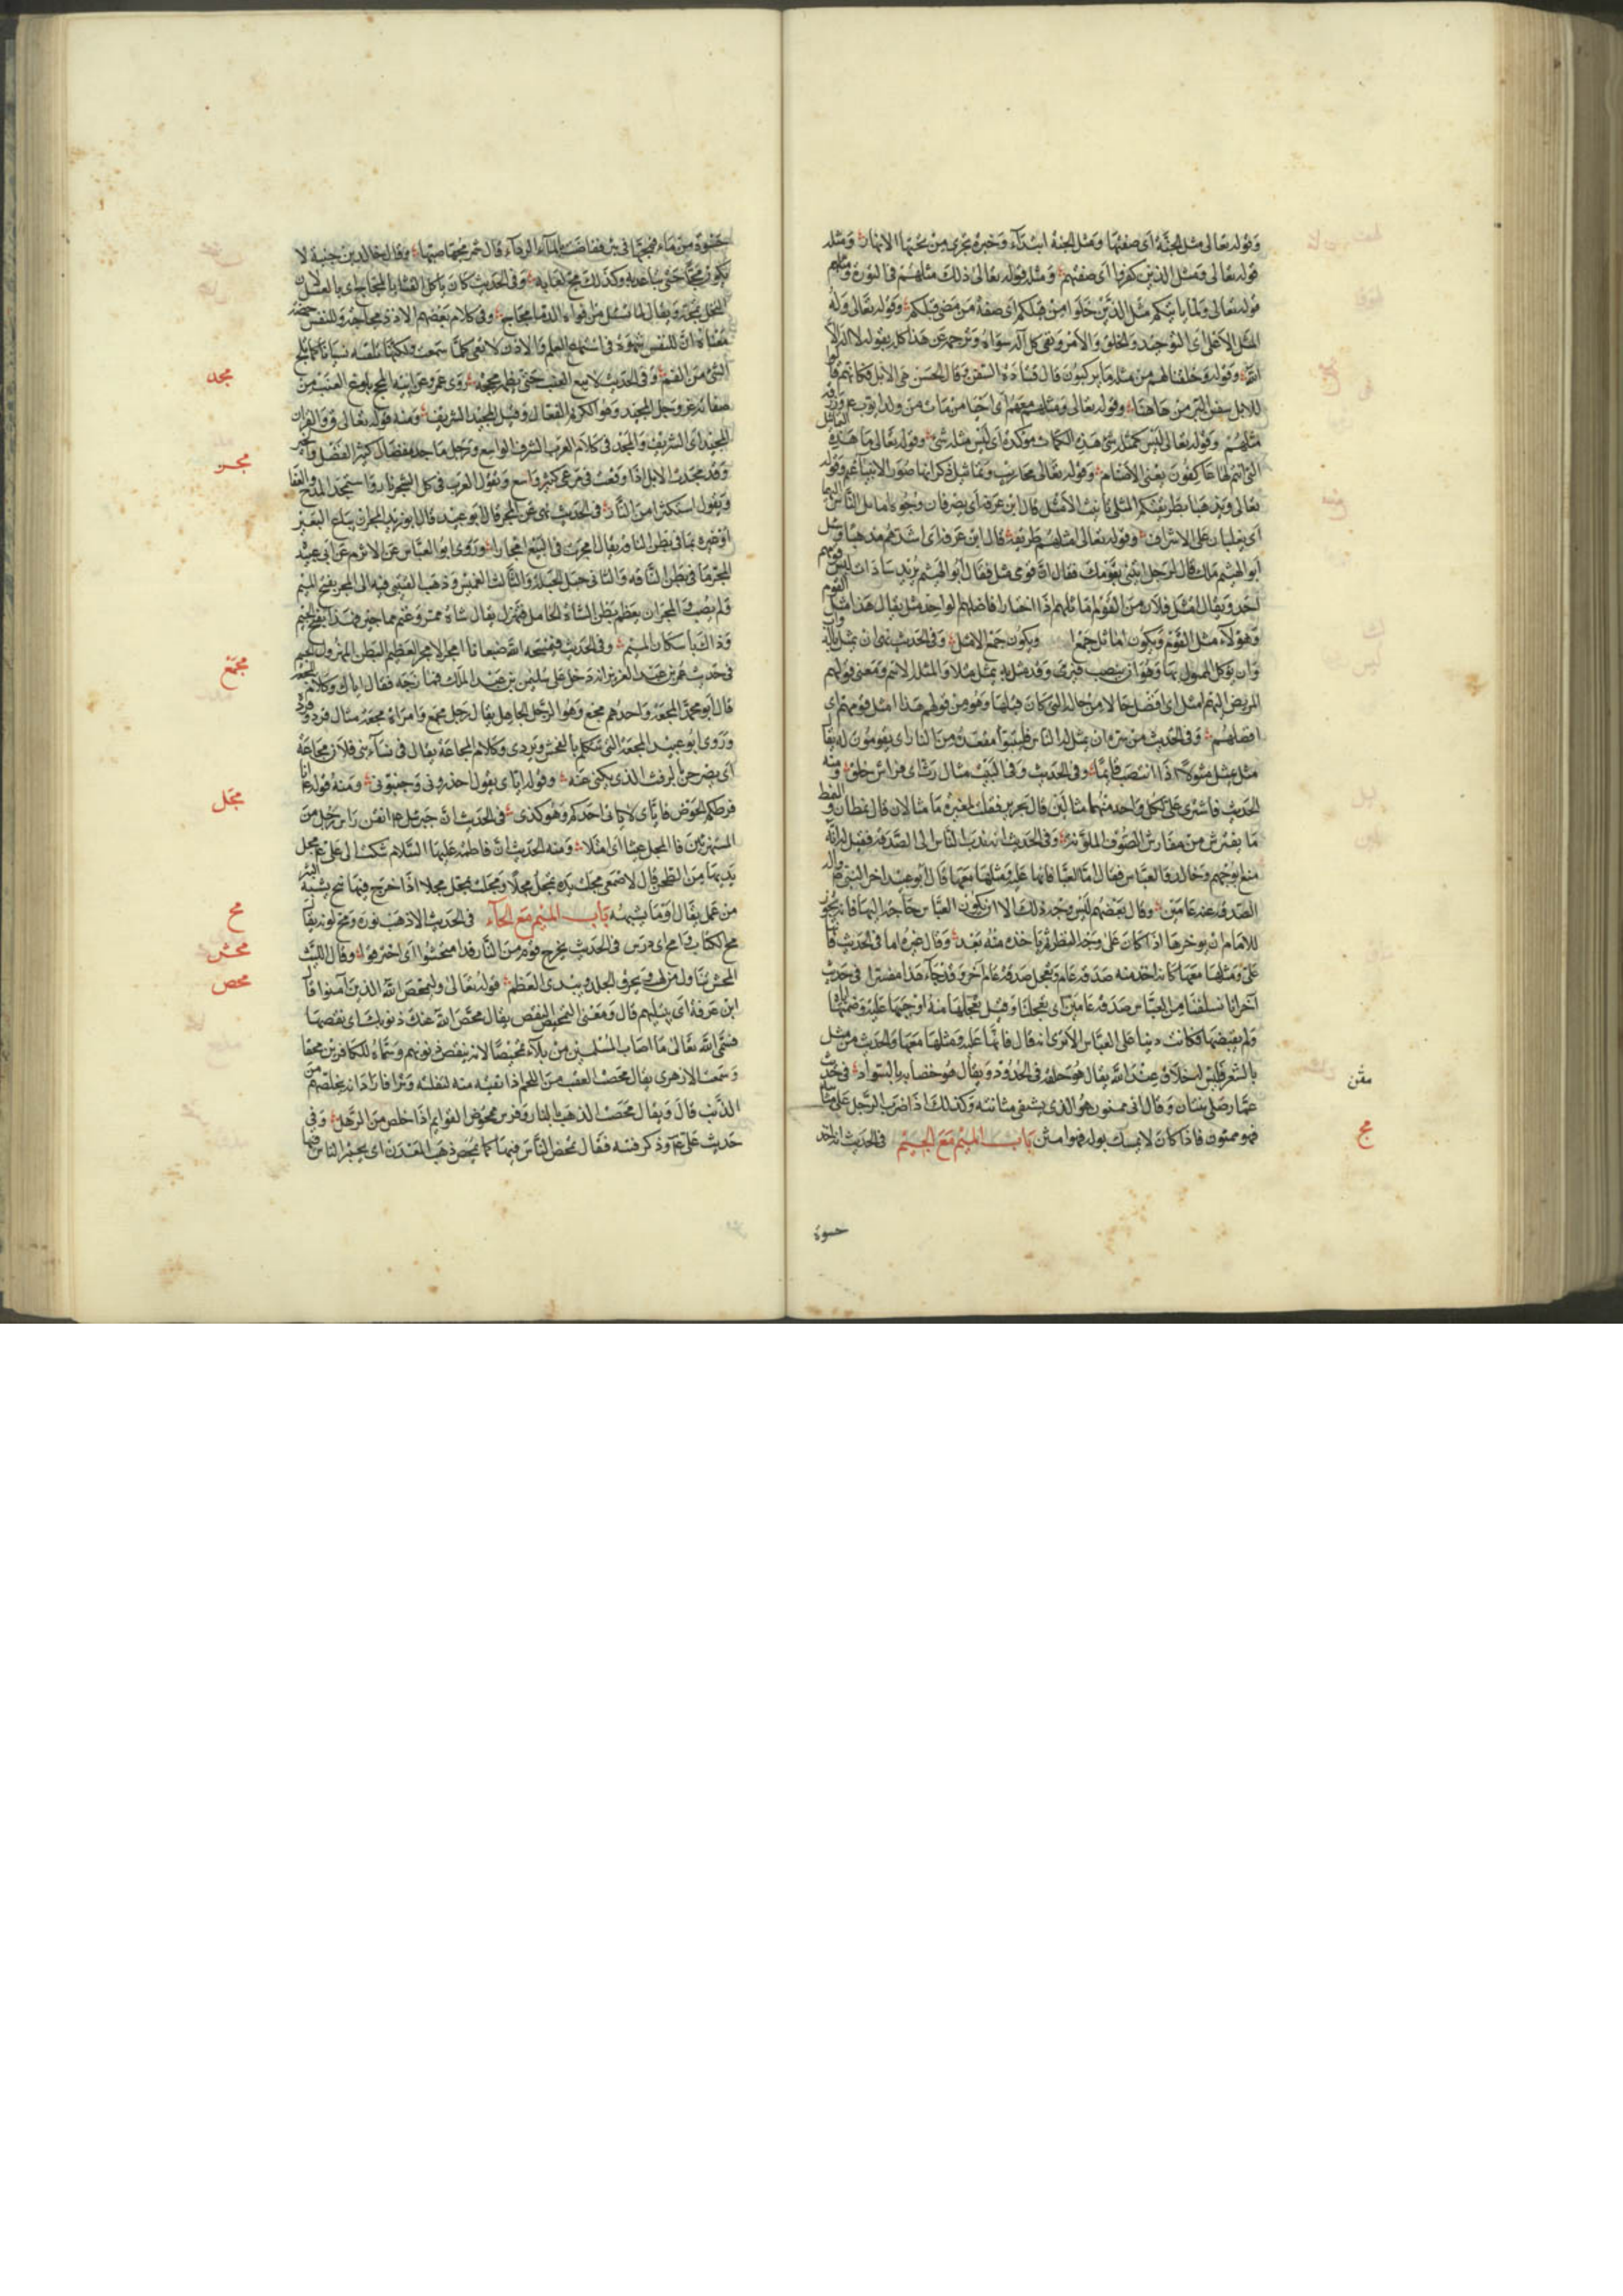 وقوله تعالى مثل الجنة أى صفتها ومثل الجنة ابتداء وخبره تجرى من تحتها الانهار ومثله
قوله تعالى ومثل الذين كفروا أى صفتهم ومثله قوله تعالى ذلك مثلهم فى التورة ومثلهم
قوله تعالى ولما ياتيكم مثل الذين خلوا من قبلكم أى صفة من مضى قبلكم وقوله تعالى وله
المثل الأعلى أى التوحيد والخلق والأمر ونفى كل آله سواه وترجمة عن هذا كله بقوله لا اله الا
الله وقوله وخلقنا لهم من مثله ما يركبون قال قتادة السفن وقال الحسن هى الابل فكانهم قالوا
للابل سفن البر من هاهنا وقوله تعالى ومثلهم معهم أى
مثلهم وقوله تعالى ليس كمثله شئ هذه الكاف مؤكدة أى ليس مثله شئ وقوله تعالى ما هذه التماثيل
التى انتم لها عاكفون يعنى الأصنام وقوله تعالى محاريب وتماثيل ذكر انها صور الانبياء وقوله
تعالى ويذهبا بطريقتكم المثلى تانيث الأمثل قال ابن عرفة أى يصرفان وجوه اماثل الناس اليهما
أى يغلبان على الاشراف وقوله تعالى امثلهم طريقة قال ابن عرفة أى اشدهم مذهبا وسئل
ابو الهيثم مالك قال لرجل ائتنى بقومك فقال ان قومى مثل فقال أبو الهيثم يريد سادات ليس فوقهم
احد ويقال امثل فلان من القوم
وهؤلاء مثل القوم ويكون اماثل جمعا ويكون جمع الامثل وفى الحديث نهى ان يمثل بالدواب
وان توكل الممثول بها وهو ان ينصب فترمى وقد مثل به يمثل مثلا والمثلة الاسم ومعنى قولهم
المريض اليوم امثل اى افضل حالا من حاله التى كان قبلها وهو من قولهم هذا امثل قومه اى
افضلهم وفى الحديث من سره ان يمثل له الناس فليتبوا مقعده من النار اى يقومون له يقال
مثل يمثل مثولا اذا انتصب قائما وفى الحديث وفى البيت مثال رث اى فراش خلق ومنه
الحديث فاشترى على لكل واحد منهما مثالين قال جرير فقلت لمغيرة ما مثالان قال نمطان والنمط
ما يفترش من مفارش الصوف الملونة وفى الحديث انه ندب الناس الى الصدقة فقيل له انه قد
منع ابو جهم وخالد والعباس فقال اما العباس فانها عليه ومثلها معها قال أبو عبيد اخر النبى
الصدقة عنه عامين وقال بعضهم ليس وجه ذلك الا ان يكون العباس حاجة اليها فانه يجوز
للامام ان يوخرها اذا كان على وجه النظر ثم ياخذه منه بعد وقال غيره اما فى الحديث فانها
على ومثلها معها كانه اخذ منه صدقة عام وتعجل صدقة عام آخر وقد جاء هذا مفسرا فى حديث
آخر انا تسلفنا من العباس صدقة عامين اى تعجلنا وقيل تعجلها منه اوجبها عليه وضمنها
ولم يقبضها فكانت دينا على العباس الا ترى انه قال فانها عليه ومثلها معها والحديث من مثل
بالشعر فليس له خلاق عند الله يقال هو حلقه فى الخدود ويقال هو خضابه بالسواد فى حديث
عمار صلى بتبان وقال انى ممثون هو الذى يشتكى مثانته وكذلك اذا ضرب الرجل على مثانته
فهو ممثون فاذا كان لا يمسك بوله فهو امثن باب الميم مع الجيم فى الحديث انه اخذ
مثن
مج
حسوة
حسوة من ماء فمجها فى بئر ففاضت بالماء الرواء قال شمر مجها صبها وقال خالد بن جنبة لا
يكون مجا حتى يباعد به وكذلك مج لعابه وفى الحديث كان ياكل القثاء بالمجاج اى بالعسل لان
النحل تمجه ويقال لما يسيل من افواه الدبا مجاج وفى كلام بعضهم الاذن مجاجة وللنفس حمضة
معناه ان للنفس شهوة فى استماع العلم والأذن لا تعى كلما سمعت ولكنها تلقه نسيانا كما يمج
الشئ من الفم وفى الحديث لا يبع العنب حتى يظهر مججه
صفاته عز وجل المجيد وهو الكريم الفعال وقيل المجيد الشريف ومنه قوله تعالى ق والقران
المجيد اى الشريف والمجد فى كلام العرب الشرف الواسع ورجل ماجد مفضال كثير الفضل والخير
وقد مجدت الابل اذا وقعت فى مرعى كثير واسع وتقول العرب فى كل الشجر نار واستمجد المرخ والعفار
ويقول استكثرا من النار فى الحديث نهى عن المجر قال أبو عبيد قال ابو زيد المجر ان يباع البعير
او غيره بما فى بطن الناقة يقال امجرت فى البيع امجارا وروى ابو العباس عن الاثرم عن ابى عبيدة
المجر ما فى بطن الناقة والثانى حبل الحبلة والثالث الغميس وذهب القتيبى فيه الى المجر بفتح الميم
ولم يصب والمجر ان يعظم بطن الشاة الحامل فتهزل يقال شاة ممجر وغنم مماجير وهذا بفتح الجيم
وذاك باسكان الميم وفى الحديث فيمسخه الله ضبعانا امجر الامجر العظيم البطن المهزول الجسم
فى حديث عمر بن عبد العزيز انه دخل على سليمن بن عبد الملك فمازحه فقال اياك وكلام المجعة
قال أبو محمد المجعة واحدهم مجع وهو الرجل الجاهل يقال رجل مجع وامراة مجعة مثال قرد وقردة
وروى ابو عبيد المجعة التى تتكلم بالفحش ويردى وكلام المجاعة يقال فى نساء بنى فلان مجاعة
أى يصرحن بالرفث الذى يكنى عنه وقوله اياى يقول احذرونى وجنبونى ومنه قوله انا
فرطكم الحوض فاياى لا ياتى احدكم وهو كذى فى الحديث ان جبرئل نقر راس رجل من
المستهزئين فا المجل عينا اى امتلا ومنه الحديث ان فاطمة عليها السلام شكت الى على مجل
يديها من الطحن قال الاصمعى مجلت يده تمجل مجلا ومجلت تمجل مجلا اذا خرج فيها نتح يشبه البثر
من عمل يقال أو ما يشبهه باب الميم مع الحاء فى الحديث الا ذهب نوره ومح لونه يقال
مح الكتاب وامح اى درس فى الحديث يخرج قوم من النار قد امتحشوا اى احترقوا وقال الليث
المحش تناول من لهب يحرق الجلد ويبدى العظم قوله تعالى وليمحص الله الذين آمنوا قال
ابن عرفة اى يبتليهم قال ومعنى التمحيص النقص يقال محص الله عنك ذنوبك اى نقصها
فسمى الله تعالى ما اصاب المسلمين من بلاء تمحيصا لانه ينقص ذنوبهم وسماه للكافرين محقا
وسمعت الازهرى يقال محصت العقب من اللحم اذا نقيته منه لتفتله وترا فاراد انه يخلصهم من
الذنوب قال ويقال محصت الذهب بالنار وفرس ممحوص القوايم اذا خلص من الرهل وفى
حديث على وذكر فتنة فقال يمحص الناس فيها كما يمحص ذهب المعدن اى يختبر الناس فيها
مجد
مجر
مجع
مجل
مح
محش
محص